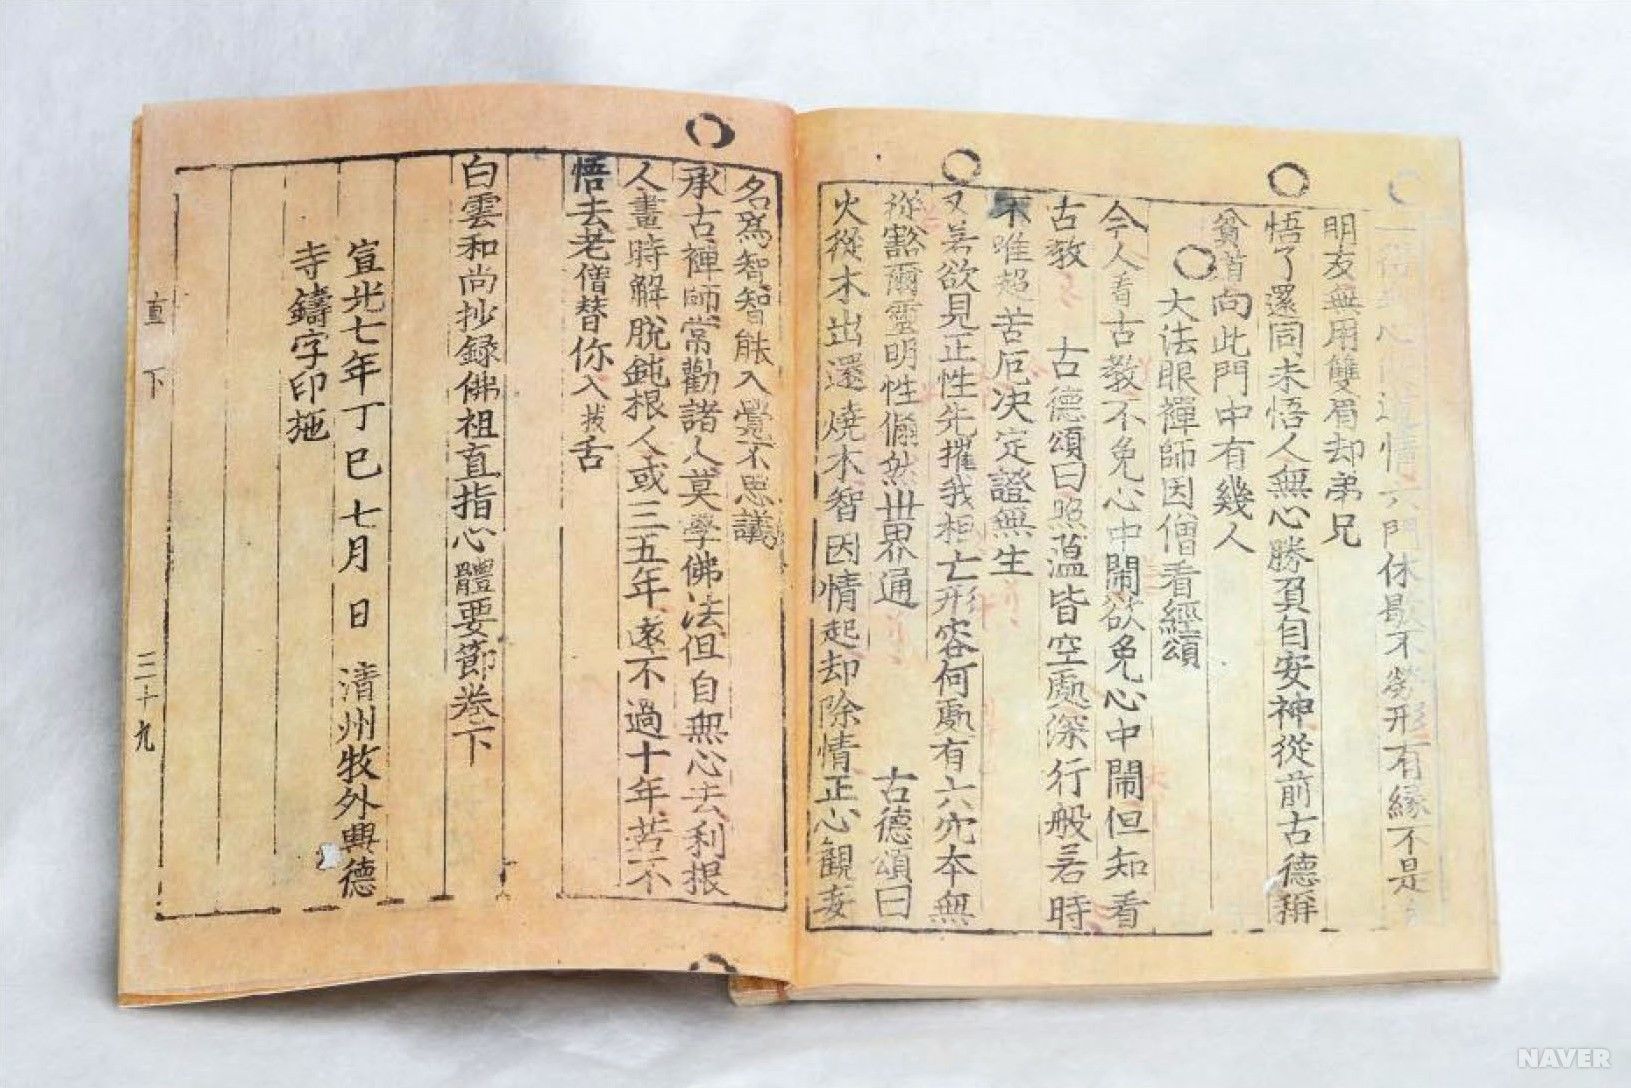 門休歇不勞形有緣不是
明友無用雙眉却弟兄
悟了還同未悟人無心勝負自安神從前古德稱
貧道向此門中有幾人
大法眼禪師因僧看經頌
今人看古教不免心中鬧欲免心中鬧但知看
古教 古德頌曰照薀皆空處深行般若時
不唯超苦厄決定證無生
又善欲見正性先摧我相亡形容何處有六穴本無
從豁爾靈明性翛然世界通 古德頌曰
火從木出還燒木智因情起却除情正心觀妄
名爲智智能入覺不思議
承古禪師常勸諸人莫學佛法但自無心去利根
人畫時解脫鈍根人或三五年遠不過十年若不
悟去老僧替你入拔舌
白雲和尚抄録佛祖直指心體要節卷下
宣光七年丁巳七月 日 清州牧外興德
寺鑄字印施
直 下 三十九
NAVER